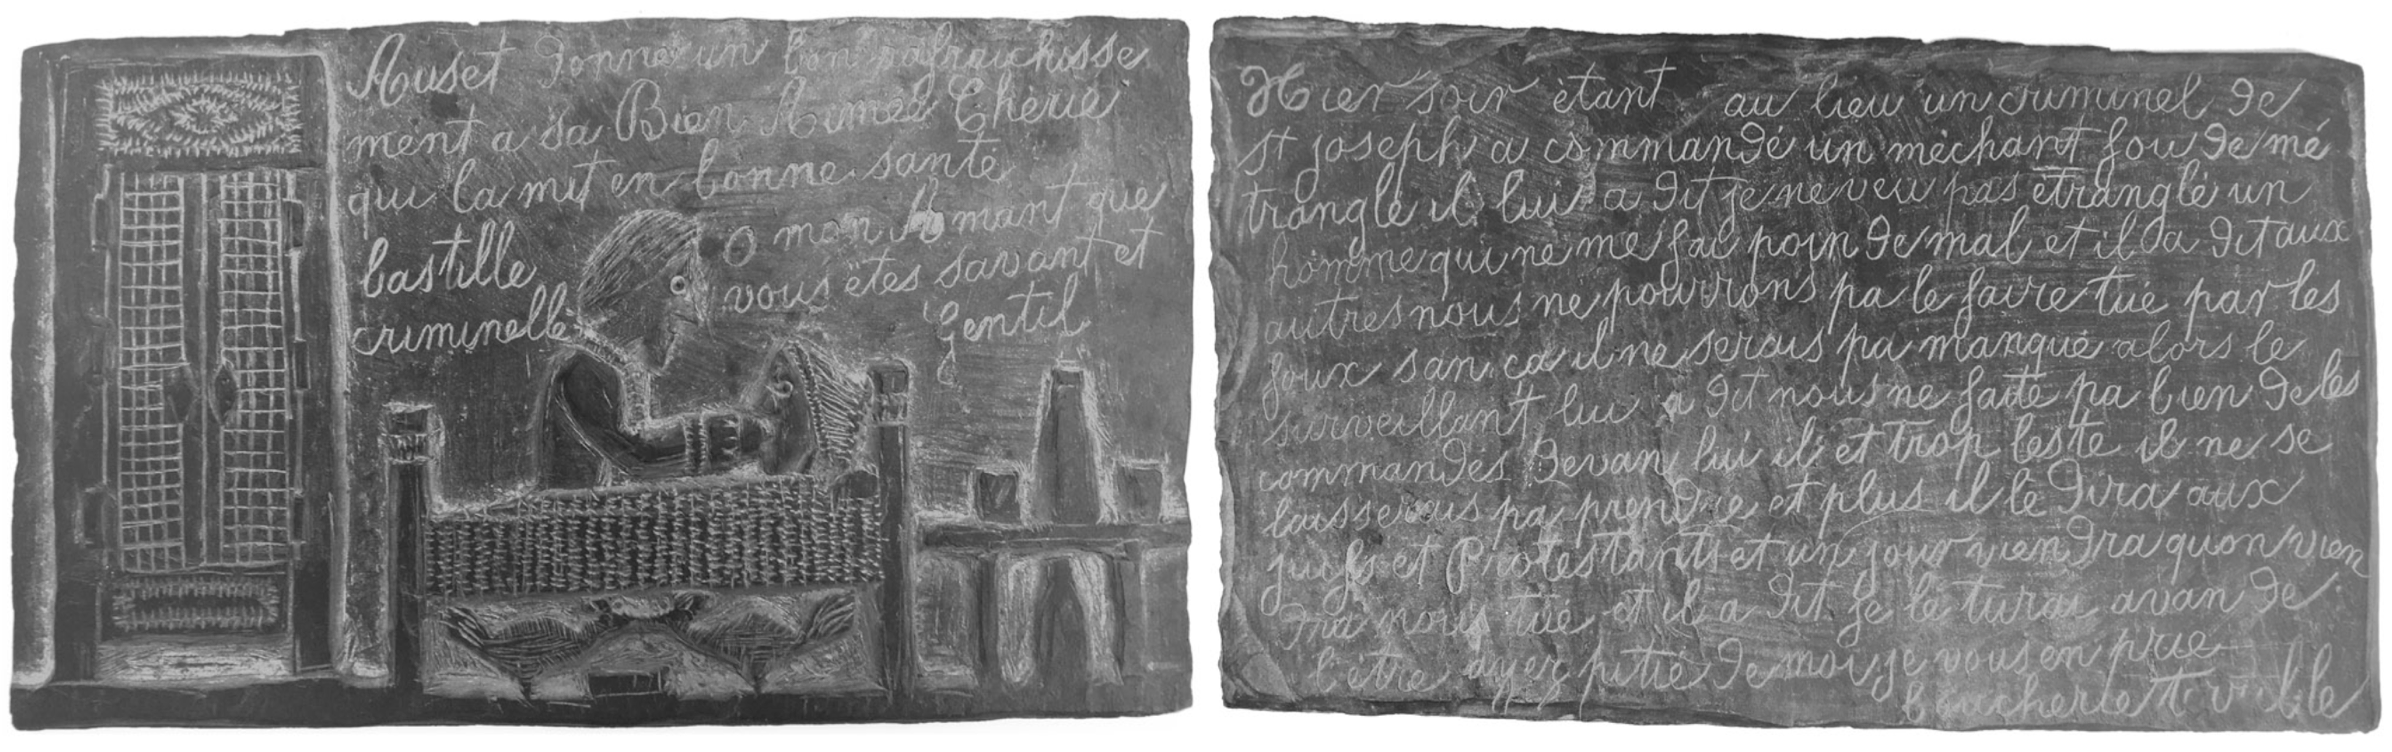 Auset donné un bon rafraichisse
ment a sa Bien Aimée Chérie
qui la mit en bonne santé
bastille
criminelle
O mon Amant que
vous êtes savant et
Gentil
Hier soir étant au lieu un criminel de
st joseph a commandé un méchant fou de mé
trangle il lui a dit je ne veu pas étranglé un
homme qui ne me fai poin de mal et il a dit aux
autres nous ne pourrons pa le faire tué par les
foux san ca il ne serais pa manqué alors le
surveillant lui a dit nous ne faite pa bien de les
commandés devan lui il et trop leste il ne se
laisserais pa prendre et plus il le dira aux
juifs et Protestants et un jour viendra quon vien
dra nous tué et il a dit je le turai avan de
l'être ayer pitié de moi je vous en prie
boucherie